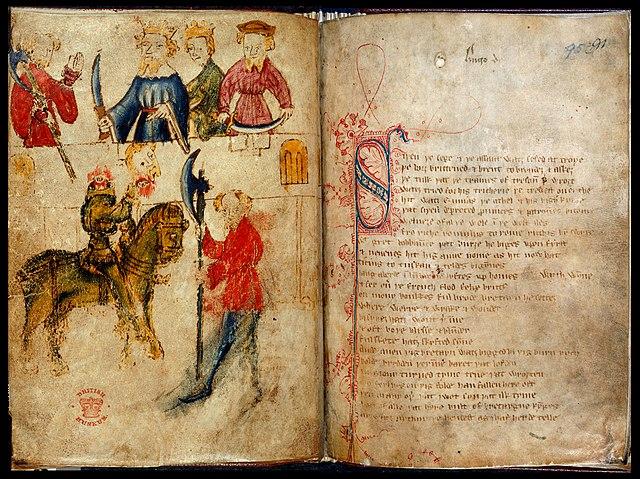 Hugo d
95 91
SIþen þe sege & þe assaut watz sesed at troye
þe borȝ brittened & brent to brondez & askez
þe tulk þat þe trammes of tresoun þer wroȝt
watz tried for his tricherie þe trewest on erthe
hit watz Ennias þe athel & his highe kynde
þat siþen depreced prouinces & patrounes bicome
welneȝe of al þe wele in þe west iles
fro riche romulus to rome ricchis hym swyþe
gret bobbaunce þat burȝe he biges vpon fyrst
& neuenes hit his aune nome as hit now hat
ticius to tuskan & teldes bigynnes
langaberde in lumbardie lyftes vp homes wyth wynne
& fer ouer þe french flod felix brutus
on mony bonkkes ful brode bretayn he settez
where werre & wrake & wonder
bi syþez hatz wont þer inne
& oft boþe blysse & blunder
ful skete hatz skyfted synne
ande quen þis bretayn watz bigged bi þis burn rych
bolde bredden þer inne baret þat lofden
in mony turned tyme tene þat wroȝten
mo ferlyes on þis folde han fallen here oft
þen in any oþer þat I wot syn þat ilk tyme
bot of alle þat here bult of bretaygne kynges
ay watz arthur þe hendest as I haf herde telle
BRITISH
MUSEUM